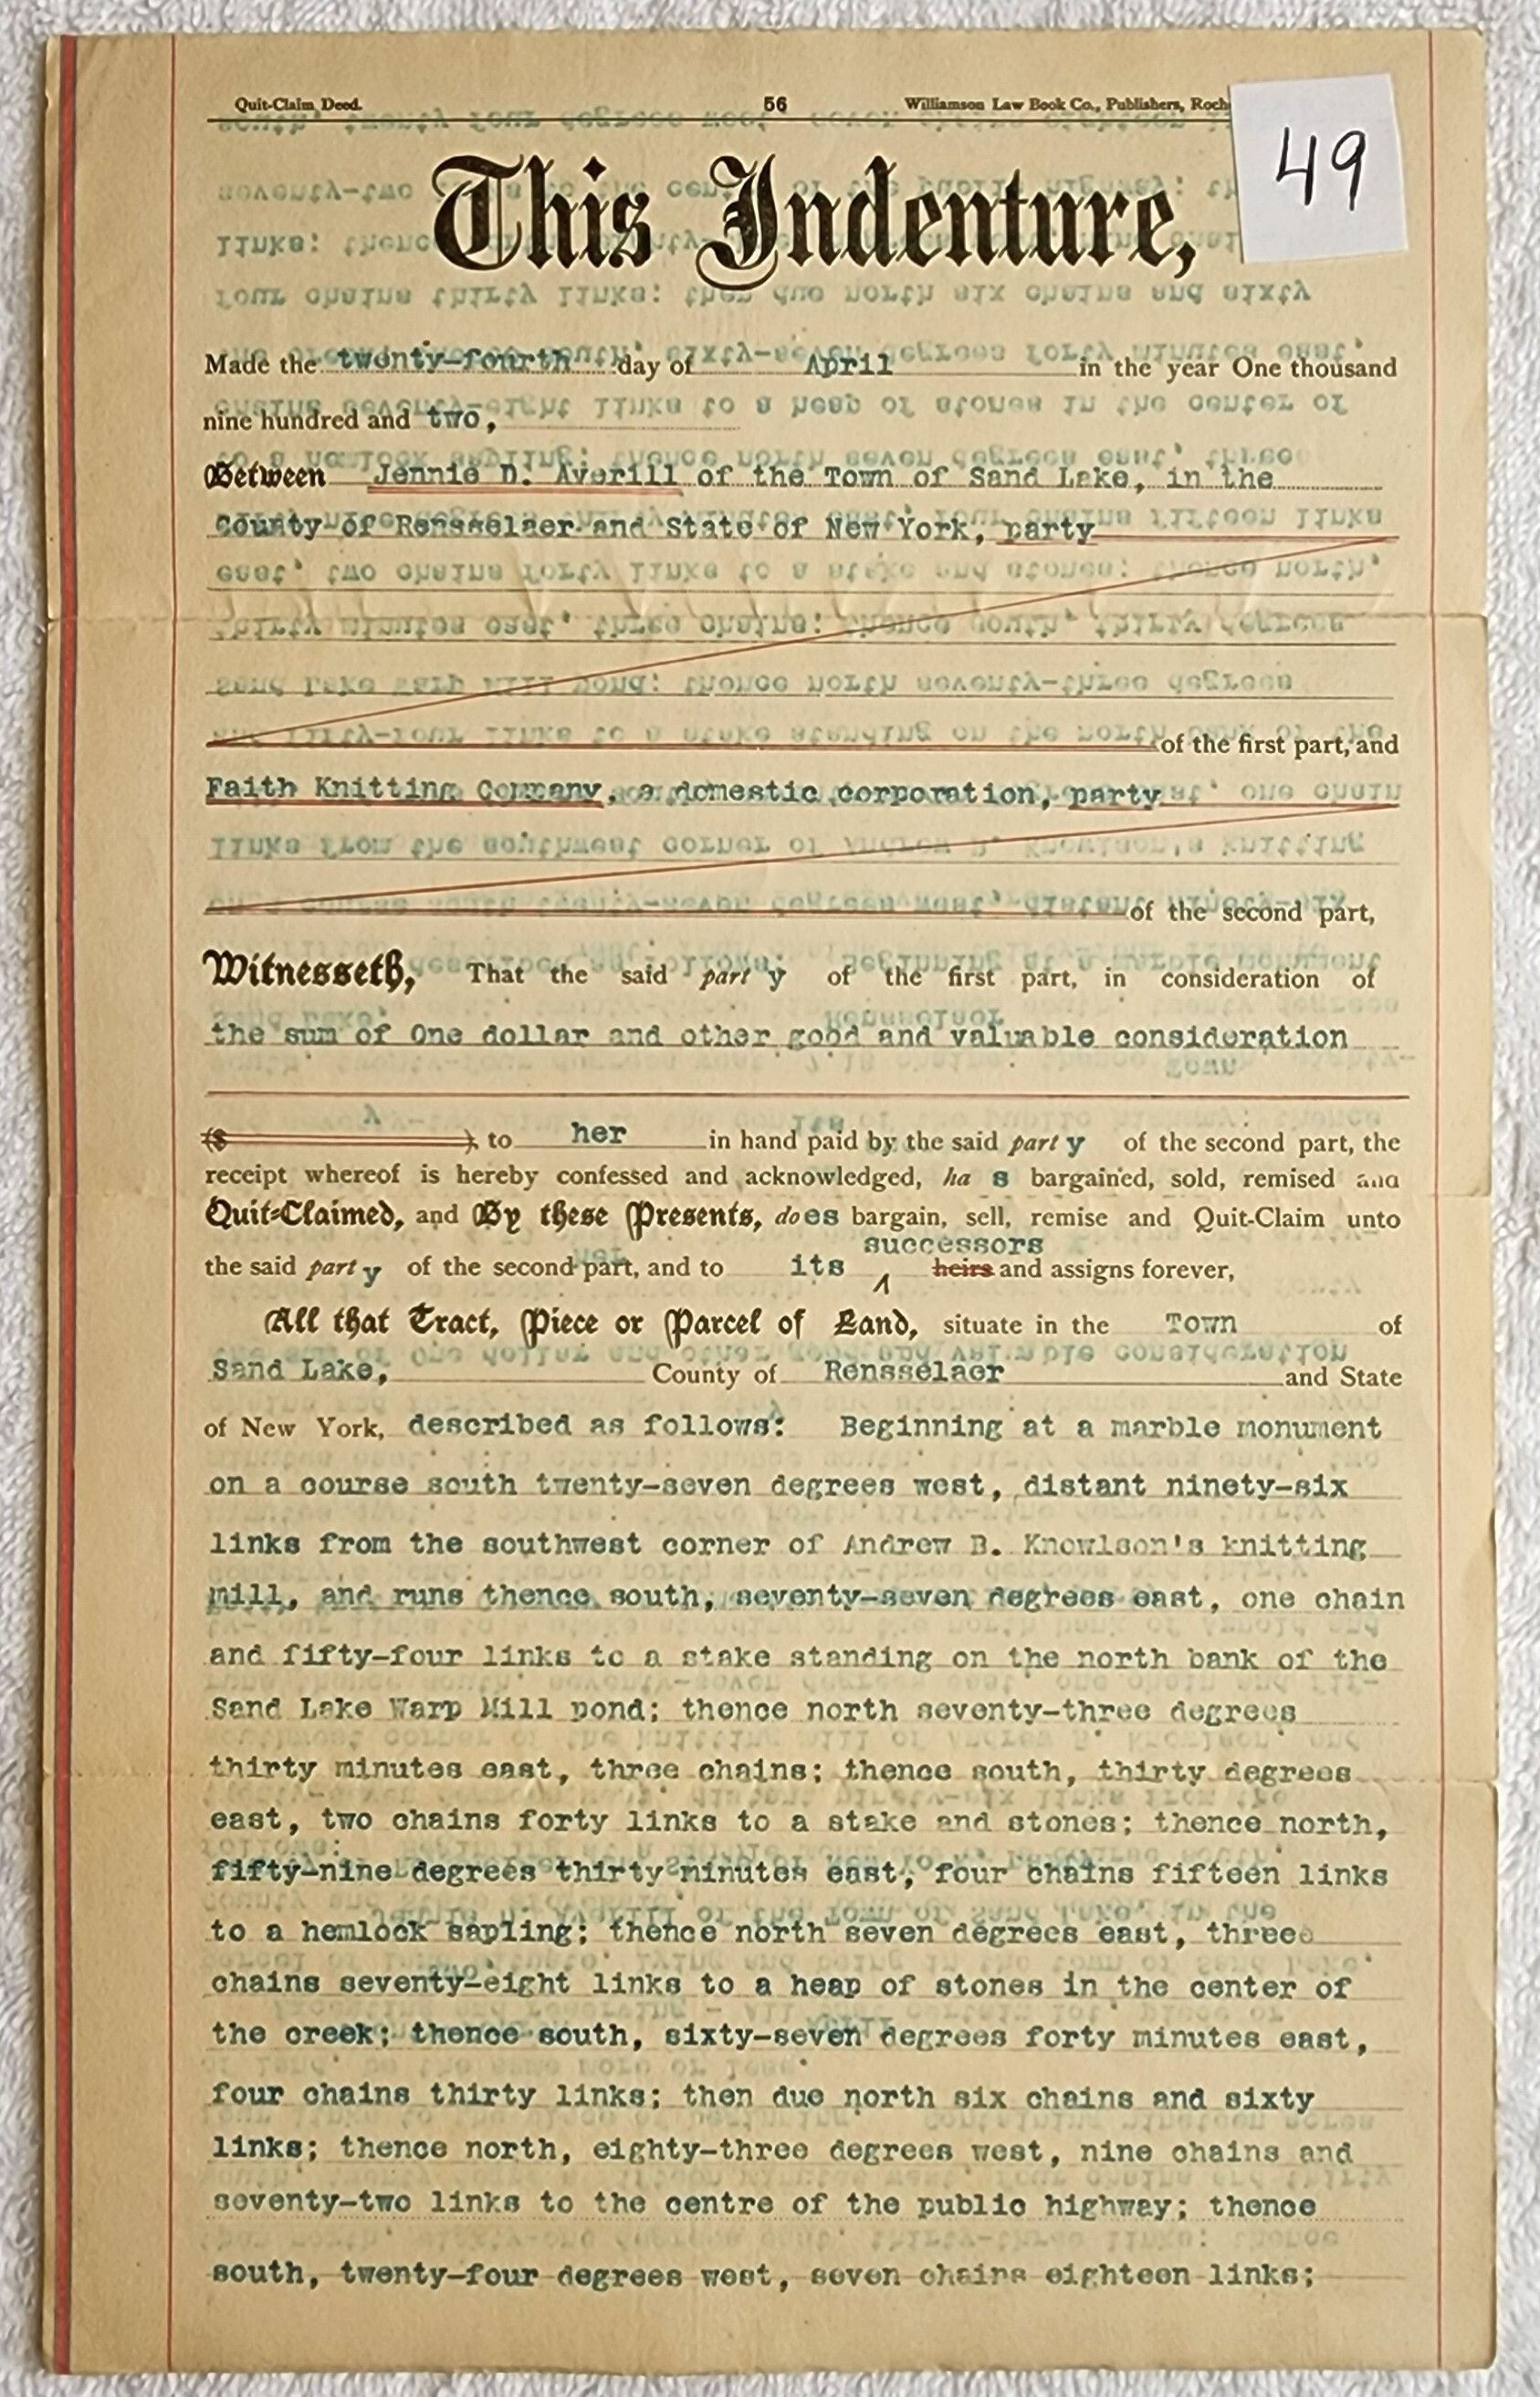 Quit-Claim Deed. 56 Williamson Law Book Co., Publishers, Roch
49
This Indenture,
Made the twenty-fourth day of April in the year One thousand
nine hundred and two,
Between Jennie D. Averill of the Town of Sand Lake, in the
County of Rensselaer and State of New York, party
of the first part, and
Faith Knitting Company, a domestic corporation, party
of the second part,
Witnesseth, That the said party of the first part, in consideration of
the sum of One dollar and other good and valuable consideration
($ ) to her in hand paid by the said party of the second part, the
receipt whereof is hereby confessed and acknowledged, has bargained, sold, remised and
Quit-Claimed, and By these Presents, does bargain, sell, remise and Quit-Claim unto
successors
the said party of the second part, and to its heirs and assigns forever,
All that Tract, Piece or Parcel of Land, situate in the Town of
Sand Lake, County of Rensselaer and State
of New York, described as follows: Beginning at a marble monument
on a course south twenty-seven degrees west, distant ninety-six
links from the southwest corner of Andrew B. Knowlson's knitting
mill, and runs thence south, seventy-seven degrees east, one chain
and fifty-four links to a stake standing on the north bank of the
Sand Lake Warp Mill pond; thence north seventy-three degrees
thirty minutes east, three chains; thence south, thirty degrees
east, two chains forty links to a stake and stones; thence north,
fifty-nine degrees thirty minutes east, four chains fifteen links
to a hemlock sapling; thence north seven degrees east, three
chains seventy-eight links to a heap of stones in the center of
the creek; thence south, sixty-seven degrees forty minutes east,
four chains thirty links; then due north six chains and sixty
links; thence north, eighty-three degrees west, nine chains and
seventy-two links to the centre of the public highway; thence
south, twenty-four degrees west, seven chains eighteen links;